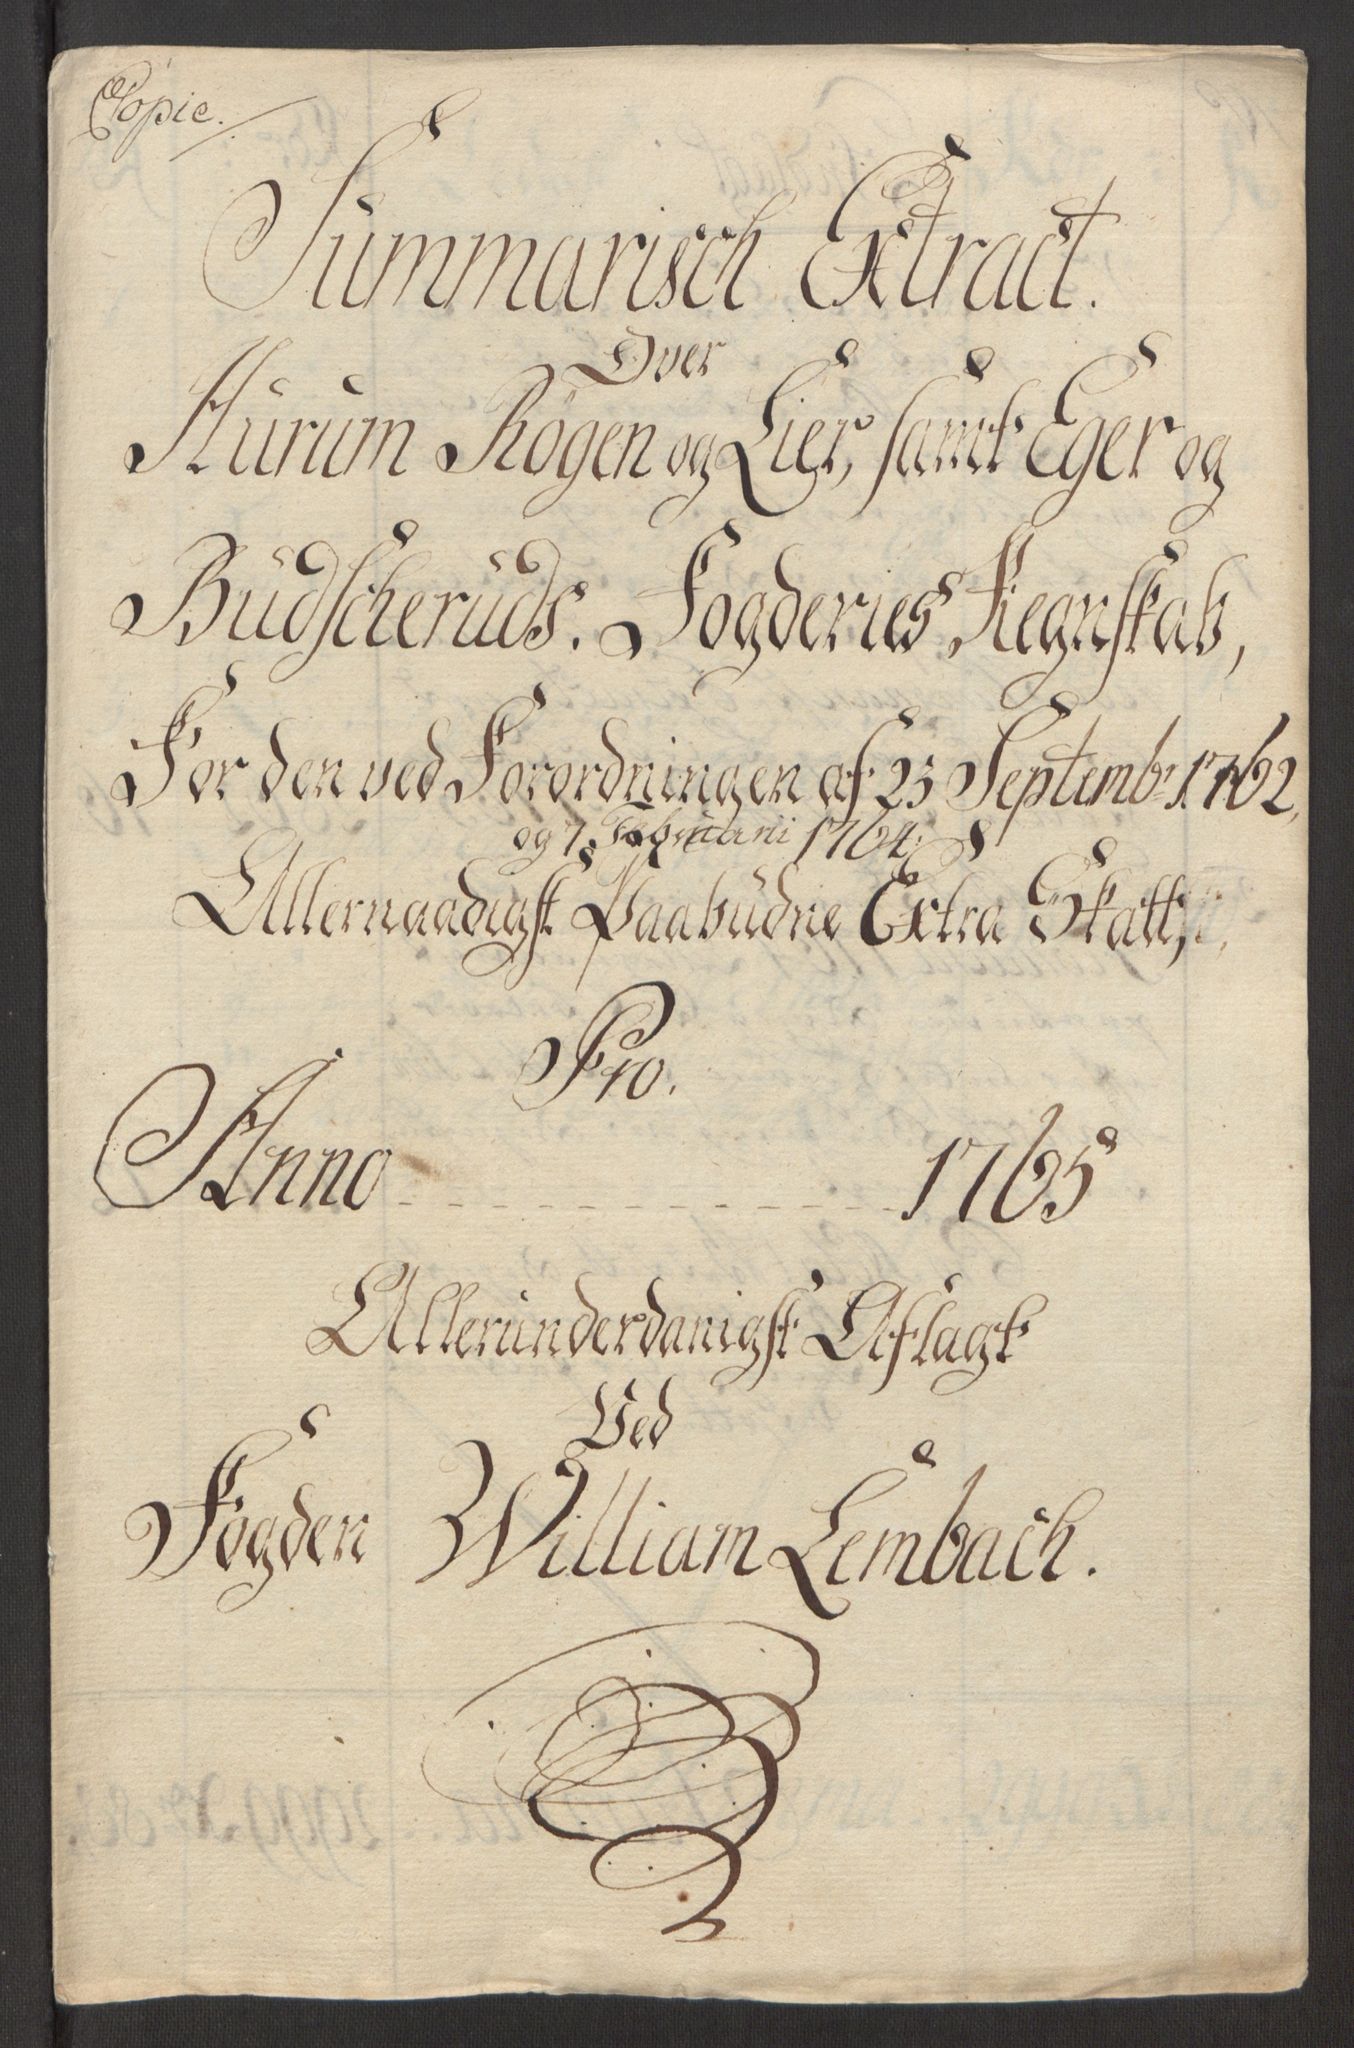 Copie.
Summarisch Extract.
Over
Hurum Rögen og Lier, samt Eger og
Budscheruds. Fogderies Regnskab,
For den ved Forordningen af 23 Septembr: 1762,
og 7. Februarii 1764.
Allernaadigst Paabudne Extra Skatt,
Pro.
Anno - - - - - - - - - - - - - 1765
Allerunderdanigst Aflagt
Ved
Fogden William Lembach.